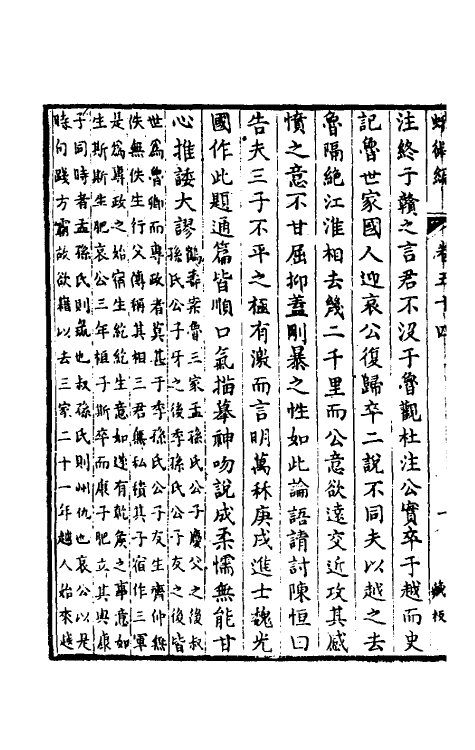 蛾術編 卷五十四 一 藏板
注終子贛之言君不沒于魯觀杜注公實卒于越而史
記魯世家國人迎哀公復歸卒二說不同夫以越之去
魯隔絕江淮相去幾二千里而公意欲遠交近攻其感
憤之意不甘屈抑蓋剛暴之性如此論語請討陳恒曰
告夫三子不平之極有激而言明萬秝庚戌進士魏光
國作此題通篇皆順口氣描摹神吻說成柔懦無能甘
心推諉大謬
鶴壽案魯三家孟孫氏公子慶父之後叔
孫氏公子牙之後季孫氏公子友之後皆
世為魯卿而專政者莫甚于季孫氏公子友生齊仲無
佚無佚生行父傳稱其相三君無私積其子宿作三軍
是為專政之始宿生紇紇生意如遂有乾侯之事意如
生斯斯生肥哀公三年桓子斯卒而康子肥立其與康
子同時者孟孫氏則彘也叔孫氏則州仇也哀公以是
時句踐方霸故欲藉以去三家二十一年越人始來越